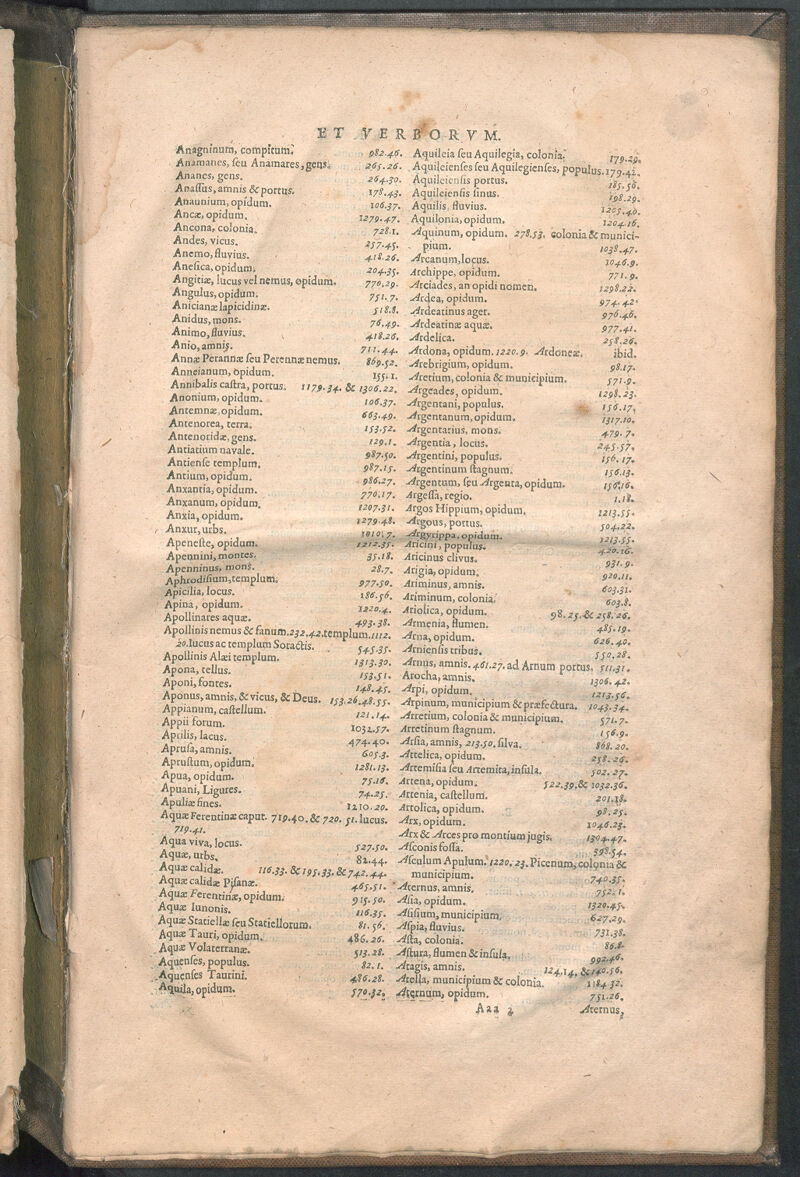 ET VERBORVM.
Anagninum, compitum. 982.46.
Anamanes, ſeu Anamares, gens. 265.26.
Ananes, gens. 264.30.
Anaſſus, amnis & portus. 178.43.
Anaunium, opidum. 106.37.
Ancæ, opidum. 1279.47.
Ancona, colonia. 728.1.
Andes, vicus. 257.45.
Anemo, fluvius. 418.26.
Aneſica, opidum. 204.35.
Angitiæ, lucus vel nemus, opidum. 770.29.
Angulus, opidum. 751.7.
Anicianæ lapicidinæ. 518.8.
Anidus, mons. 76.49.
Animo, fluvius. 418.26.
Anio, amnis. 711.44.
Annæ Perannæ ſeu Perennæ nemus. 869.52.
Anneianum, opidum. 155.1.
Annibalis caſtra, portus. 1179.34. & 1306.22.
Anonium, opidum. 106.37.
Antemnæ, opidum. 663.49.
Antenorea, terra. 153.52.
Antenoridæ, gens. 129.1.
Antiatium navale. 987.50.
Antienſe templum. 987.15.
Antium, opidum. 986.27.
Anxantia, opidum. 770.17.
Anxanum, opidum. 1207.31.
Anxia, opidum. 1279.48.
Anxur, urbs. 1010.7.
Apeneſte, opidum. 1212.35.
Apennini, montes. 35.18.
Apenninus, mons. 28.7.
Aphrodiſium, templum. 977.50.
Apicilia, locus. 186.56.
Apina, opidum. 1220.4.
Apollinares aquæ. 493.38.
Apollinis nemus & fanum. 232.42. templum. 1112.
20. lucus ac templum Soractis. 545.35.
Apollinis Alæi templum. 1313.30.
Apona, tellus. 153.51.
Aponi, fontes. 148.45.
Aponus, amnis, & vicus, & Deus. 153.26.48.55.
Appianum, caſtellum. 121.14.
Appii forum. 1032.57.
Aprilis, lacus. 474.40.
Apruſa, amnis. 605.3.
Apruſtum, opidum. 1281.13.
Apua, opidum. 75.16.
Apuani, Ligures. 74.25.
Apuliæ fines. 1210.20.
Aquæ Ferentinæ caput. 719.40. & 720. 51. lucus.
719.41.
Aqua viva, locus. 527.50.
Aquæ, urbs. 82.44.
Aquæ calidæ. 116.33. & 195.33. & 742.44.
Aquæ calidæ Piſanæ. 465.51.
Aquæ Ferentinæ, opidum. 915.50.
Aquæ Iunonis. 116.35.
Aquæ Statiellæ ſeu Statiellorum. 81.56.
Aquæ Tauri, opidum. 486.26.
Aquæ Volaterranæ. 513.28.
Aquenſes, populus. 82.1.
Aquenſes Taurini. 486.28.
Aquila, opidum. 570.32.
Aquileia ſeu Aquilegia, colonia. 179.29.
Aquileienſes ſeu Aquilegienſes, populus. 179.42.
Aquileienſis portus. 185.56.
Aquileienſis ſinus. 198.29.
Aquilis, fluvius. 1205.40.
Aquilonia, opidum. 1204.16.
Aquinum, opidum. 278.53. colonia & munici-
pium. 1038.47.
Arcanum, locus. 1046.9.
Archippe, opidum. 771.9.
Arciades, an opidi nomen. 1298.22.
Ardea, opidum. 974.42.
Ardeatinus ager. 976.46.
Ardeatinæ aquæ. 977.41.
Ardelica. 258.26.
Ardona, opidum. 1220.9. Ardoneæ. ibid.
Arebrigium, opidum. 98.17.
Aretium, colonia & municipium. 571.9.
Argeades, opidum. 1298.23.
Argentani, populus. 156.17.
Argentanum, opidum. 1317.10.
Argentarius, mons. 479.7.
Argentia, locus. 245.57.
Argentini, populus. 156.17.
Argentinum ſtagnum. 156.13.
Argentum, ſeu Argenta, opidum. 156.16.
Argeſſa, regio. 1.18.
Argos Hippium, opidum. 1213.55.
Argous, portus. 504.22.
Argyrippa, opidum. 1213.55.
Aricini, populus. 920.16.
Aricinus clivus. 931.9.
Arigia, opidum. 920.11.
Ariminus, amnis. 603.31.
Ariminum, colonia. 603.8.
Ariolica, opidum. 98.25. & 258.26.
Armenia, flumen. 485.19.
Arna, opidum. 626.40.
Arnienſis tribus. 550.28.
Arnus, amnis. 461.27. ad Arnum portus. 511.31.
Arocha, amnis. 1306.42.
Arpi, opidum. 1213.56.
Arpinum, municipium & præfectura. 1043.34.
Arretium, colonia & municipium. 571.7.
Arretinum ſtagnum. 156.9.
Arſia, amnis, 213.50. ſilva. 868.20.
Artelica, opidum. 258.26.
Artemiſia ſeu Artemita, inſula. 502.27.
Artena, opidum. 522.39. & 1032.36.
Artenia, caſtellum. 201.18.
Artolica, opidum. 98.25.
Arx, opidum. 1046.23.
Arx & Arces pro montium jugis. 1304.47.
Aſconis foſſa. 398.54.
Aſculum Apulum. 1220.23. Picenum, colonia &
municipium. 740.35.
Aternus, amnis. 752.1.
Aſia, opidum. 1320.45.
Aſiſium, municipium. 627.29.
Aſpia, fluvius. 731.38.
Aſta, colonia. 86.8.
Aſtura, flumen & inſula. 992.46.
Atagis, amnis. 124.14. & 140.56.
Atella, municipium & colonia. 1184.32.
Aternum, opidum. 751.26.
Aaa 2 Aternus,